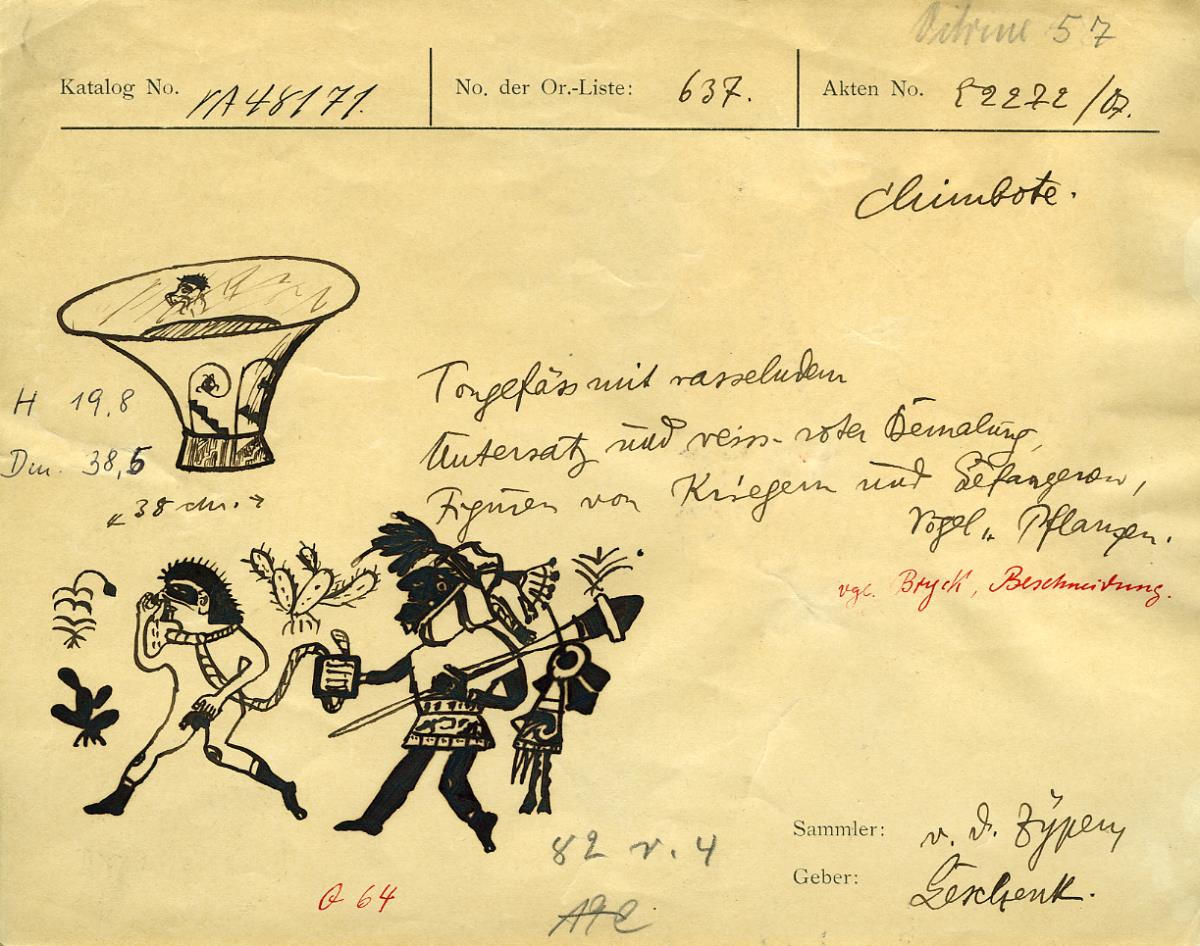 Vitrine 57
Katalog No. VA48171. No. der Or.-Liste: 637. Akten No. E2272/07.
Chimbote.
Tongefäss mit rasselndem
Untersatz und weiss-roter Bemalung,
H 19,8
Figuren von Kriegern und Gefangenen,
Dm. 38,5
Vögel, Pflanzen.
"38 cm."
vgl. Bryk, Beschneidung.
Sammler: v. d. Zypen
82 v. 4
Geber: Geschenk.
Q 64